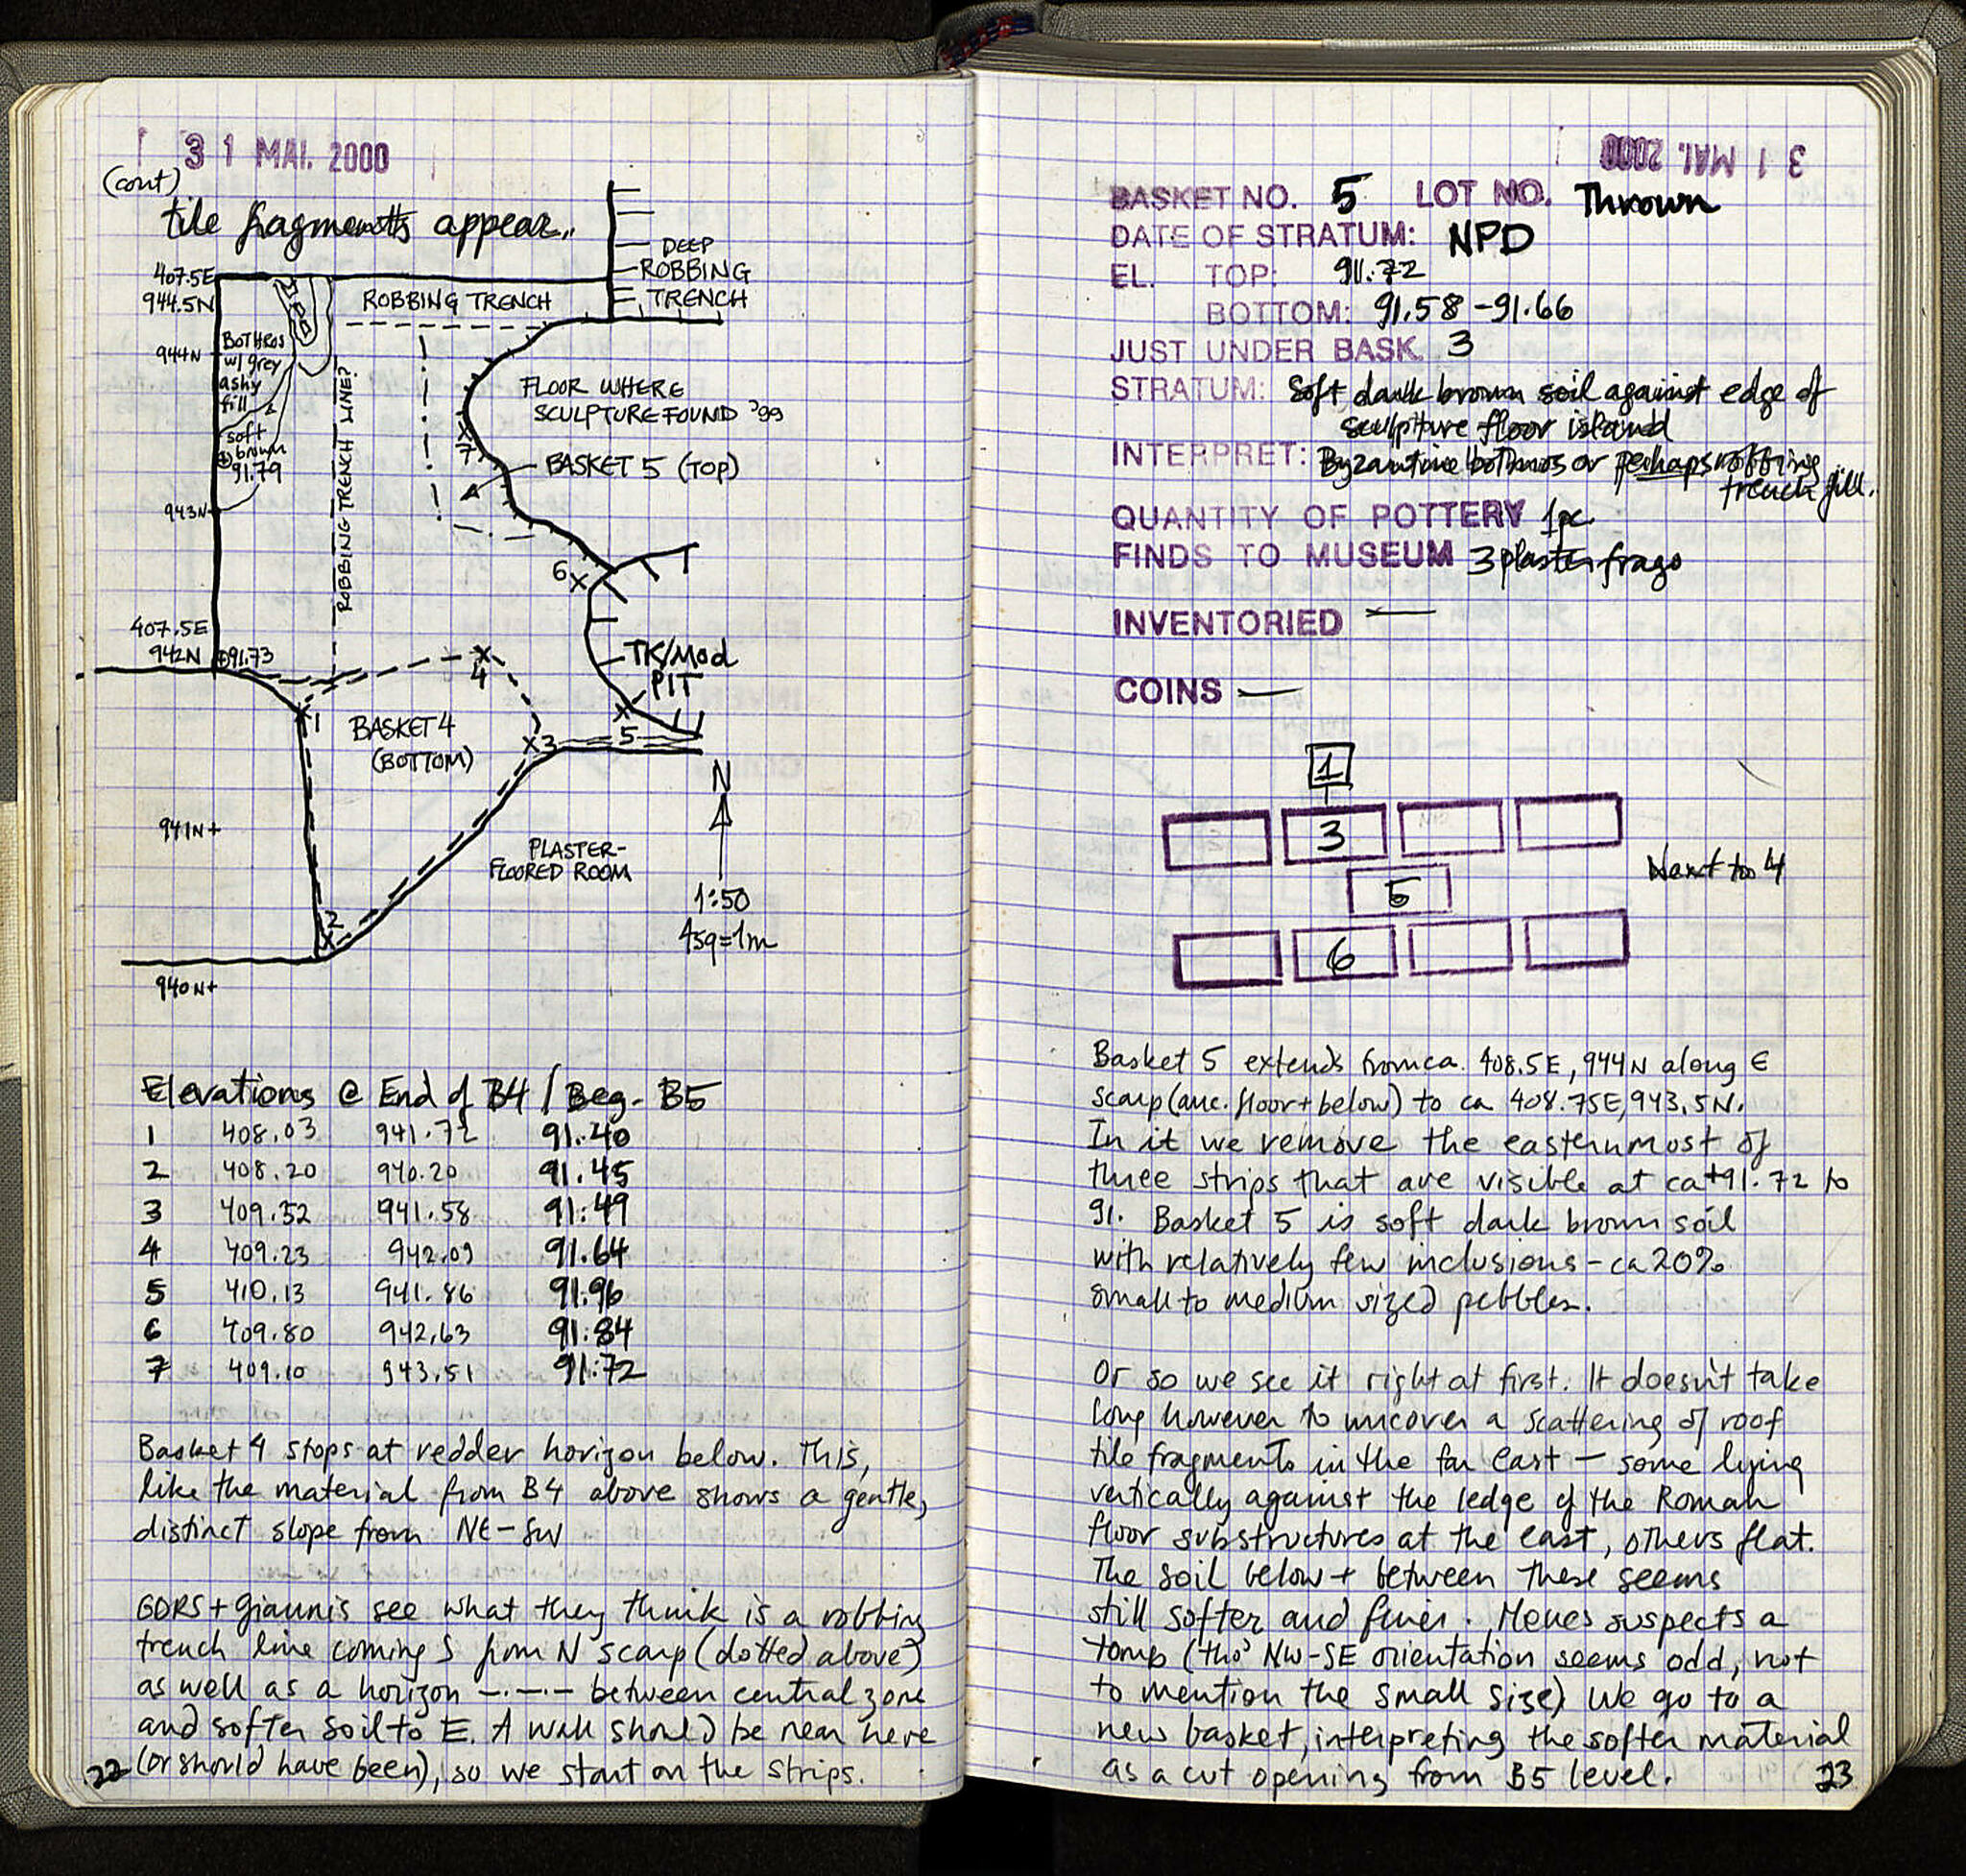 31 MAI. 2000
(cont)
tile fragments appear.
DEEP
ROBBING
TRENCH
407.5E
944.5N
ROBBING TRENCH
BOTHROS
w/ grey
ashy
fill
944N
FLOOR WHERE
SCULPTURE FOUND '99
ROBBING TRENCH LINE?
soft
brown
91.79
7
BASKET 5 (TOP)
943N
6
407.5E
942N
91.73
4
TK/Mod
PIT
1
BASKET 4
(BOTTOM)
3
5
N
941N+
PLASTER-
FLOORED ROOM
1:50
4sq=1m
2
940N+
Elevations @ End of B4 / Beg. B5
1 408.03 941.72 91.40
2 408.20 940.20 91.45
3 409.32 941.58 91.49
4 409.23 942.09 91.64
5 410.13 941.86 91.96
6 409.80 942.63 91.84
7 409.10 943.51 91.72
Basket 4 stops at redder horizon below. This,
like the material from B4 above shows a gentle,
distinct slope from NE-SW
GDRS + Giannis see what they think is a robbing
trench line coming S from N scarp (dotted above)
as well as a horizon -.-.- between central zone
and softer soil to E. A wall should be near here
(or should have been), so we start on the strips.
22
31 MAI. 2000
BASKET NO. 5 LOT NO. Thrown
DATE OF STRATUM: NPD
EL. TOP: 91.72
BOTTOM: 91.58-91.66
JUST UNDER BASK. 3
STRATUM: Soft dark brown soil against edge of
sculpture floor island
INTERPRET: Byzantine bothros or perhaps robbing
trench fill.
QUANTITY OF POTTERY 1pc.
FINDS TO MUSEUM 3 plaster frags
INVENTORIED —
COINS —
1
3
5
Next to 4
6
Basket 5 extends from ca. 408.5E, 944N along E
scarp (anc. floor + below) to ca 408.75E, 943.5N.
In it we remove the easternmost of
three strips that are visible at ca +91.72 to
91. Basket 5 is soft dark brown soil
with relatively few inclusions - ca 20%
small to medium sized pebbles.
Or so we see it right at first. It doesn't take
long however to uncover a scattering of roof
tile fragments in the far east - some lying
vertically against the ledge of the Roman
floor substructures at the east, others flat.
The soil below + between these seems
still softer and finer. Menes suspects a
tomb (tho' NW-SE orientation seems odd, not
to mention the small size) We go to a
new basket, interpreting the softer material
as a cut opening from B5 level.
23